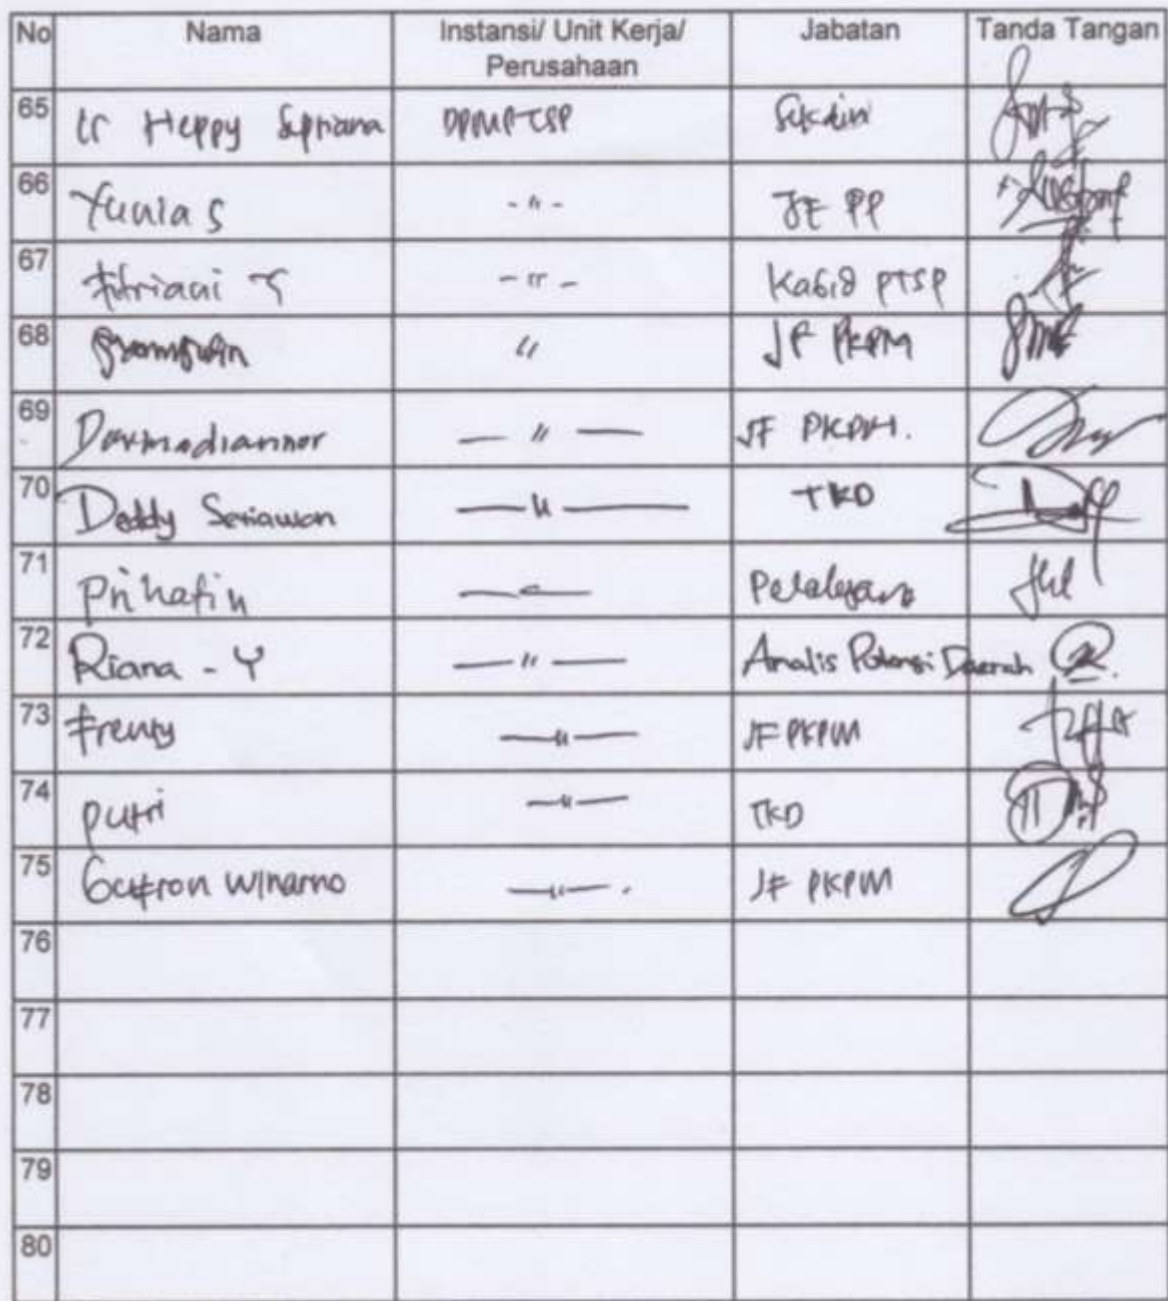 No Nama Instansi/ Unit Kerja/ Perusahaan Jabatan Tanda Tangan
65 Ir Heppy Sepriana DPMPTSP Sekdin
66 Yunia S - " - JF PP
67 Fitriani - " - Kabid PTSP
68 " JF PKPM
69 Darmadiannor — " — JF PKPM.
70 Deddy Seriawan — " — TKD
71 Prihatin
72 Riana - Y — " — Analis Potensi Daerah
73 Frenty — " — JF PKPM
74 putri — " — TKD
75 Gufron Winarno — " — . JF PKPM
76
77
78
79
80